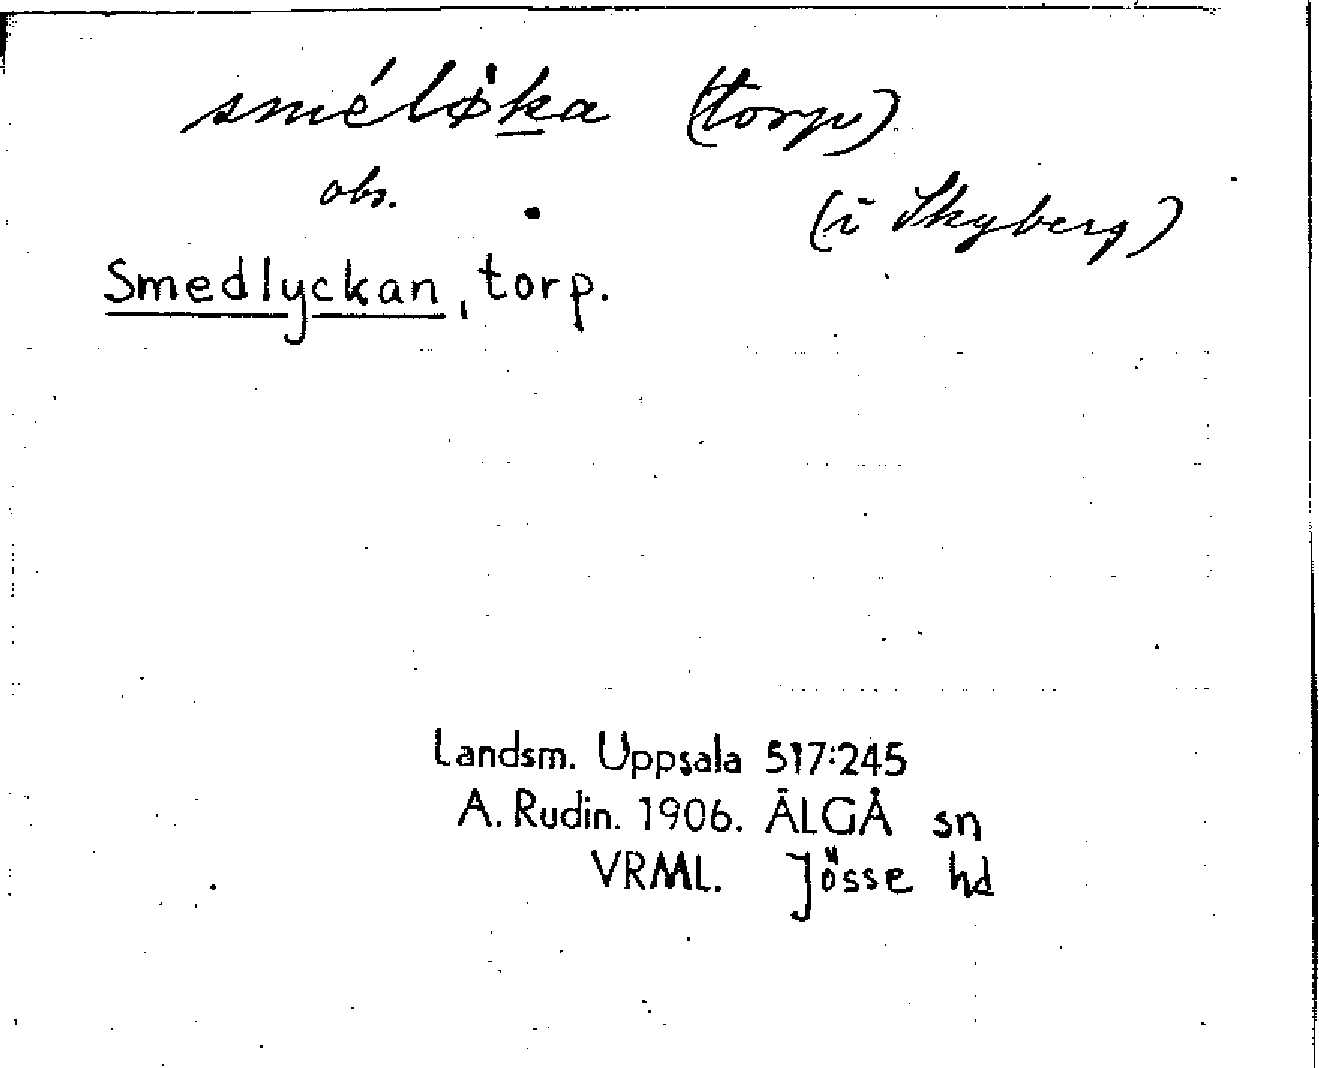 smélø̇ka (torp)
obs.
(i Skyberg)
Smedlyckan, torp.
Landsm. Uppsala 517:245
A. Rudin. 1906. ÄLGÅ sn
VRML. Jösse hd